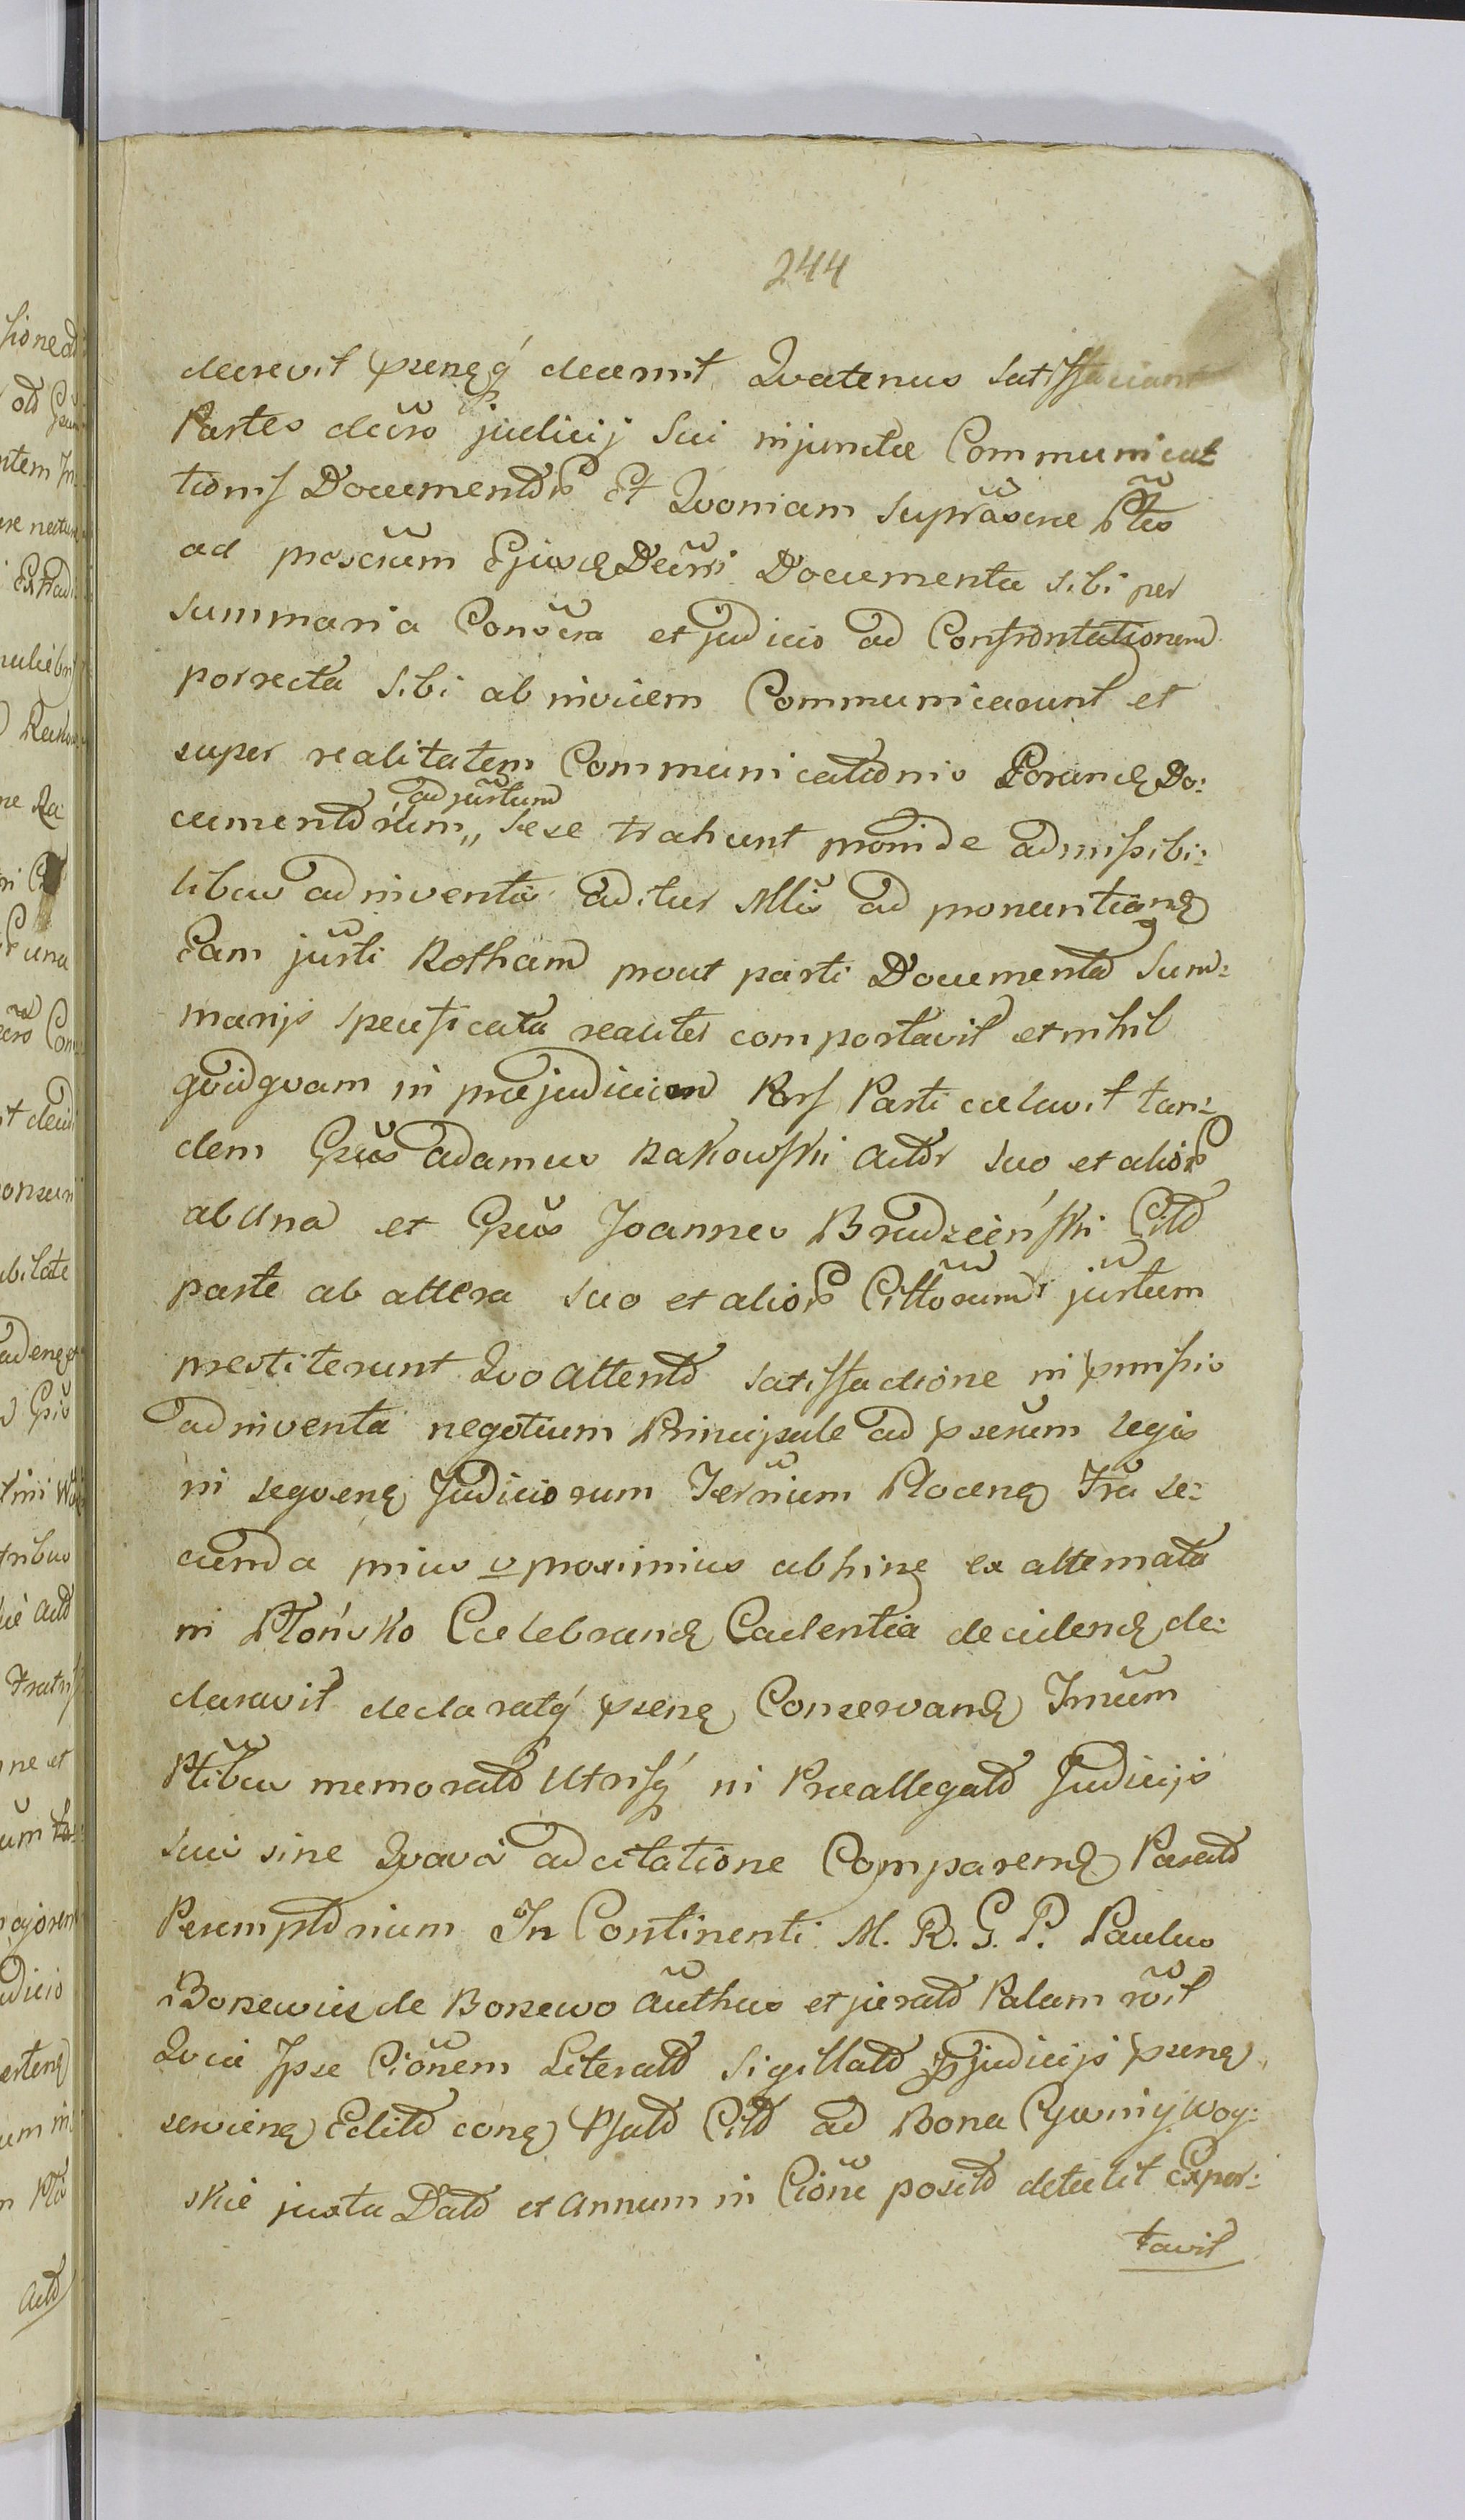 244
decrevit pseneq́ decernit Qvatenus satisfaciant
Partes decro judicij Sui injuncta Communicat
tionis Documentor Et Qvoniam supra Ptes
ad proscrum Ejusd Decri Documenta sibi per
summaria Conscra et judicio ad Confrontationem
porrecta sibi ab invicem Communicarunt et
super realitatem Communicationis Eorund Do:
cumentorum ,, sese trahunt proinde admissibi:
ad jurtum
libus adinventis aditus Mtis ad pronuntiand
Eam jurti Rotham prout parti Documenta Sum:
marijs specificata realiter comportavit et nihil
qvidqvam in præjudicium Pars Parti celavit tan:
dem Gsus Adamus Rakowski Actor suo et alior
ab Una et Gsus Joannes Brudzieński Citt
parte ab altera suo et alior Cittorum jurtum
prestiterunt Qvo Attento satisfactione in præmissis
adinventa negotium Principale ad pserum legis
in seqvenq Judiciorum Terrium Plocenq Tra se:
cunda prius v proximius abhinc ex alternata
in Płońsko Celebrand Cadentia decidend de:
claravit declaratq́ psenq Conservand Tmum
Ptibus memorat Utrisq́ in Præallegat Judicijs
suis sine Qvavis adcitatione Comparend Parat
Peremptorium In Continenti M. R. G. P. Paulus
Bonewicz de Borzewo Authus et jurat Palam rvit
Qvia Ipse Cionem Literat Sigillat pjudicijs psenq
serviend Edit conq Psat Citt ad Bona Gwniy Woy:
skie juxta Dat et Annum in Cione posit detulit Expor:
tavit